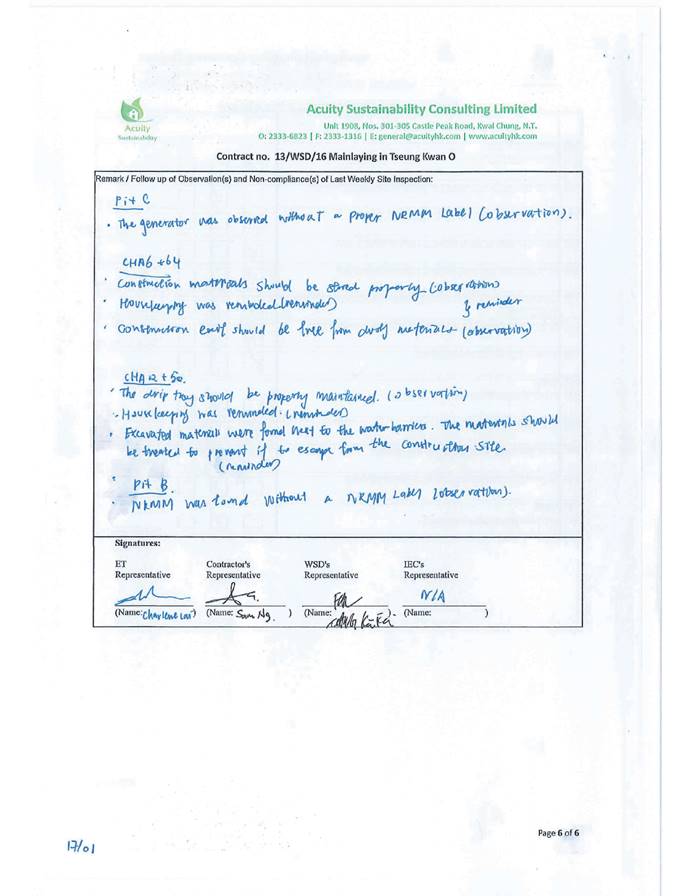 Acuity
Sustainability
Acuity Sustainability Consulting Limited
Unit 1908, Nos. 301-305 Castle Peak Road, Kwai Chung, N.T.
O: 2333-6823 | F: 2333-1316 | E: general@acuityhk.com | www.acuityhk.com
Contract no. 13/WSD/16 Mainlaying in Tseung Kwan O
Remark / Follow up of Observation(s) and Non-compliance(s) of Last Weekly Site Inspection:
Pit C
• The generator was observed without a proper NRMM Label (observation).
CHA6 +64
• Construction materials should be stored properly (observation)
& reminder
• Housekeeping was reminded (reminder)
• Construction exit should be free from dusty materials (observation)
CHA12 + 50.
• The drip tray should be properly maintained. (observation)
• Housekeeping was reminded. (reminder)
• Excavated materials were found next to the water barriers. The materials should
be treated to prevent it to escape from the construction site.
(reminder)
Pit B.
• NRMM was found without a NRMM Label (observation).
Signatures:
ET Representative
Contractor's Representative
WSD's Representative
IEC's Representative
N/A
(Name: Charlene Lai)
(Name: Sam Ng. )
(Name: )
(Name: )
Page 6 of 6
17/01